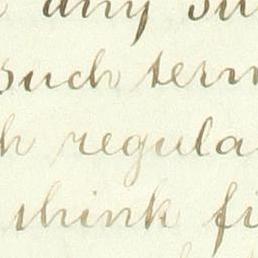 any su
such term
h regula
think fi